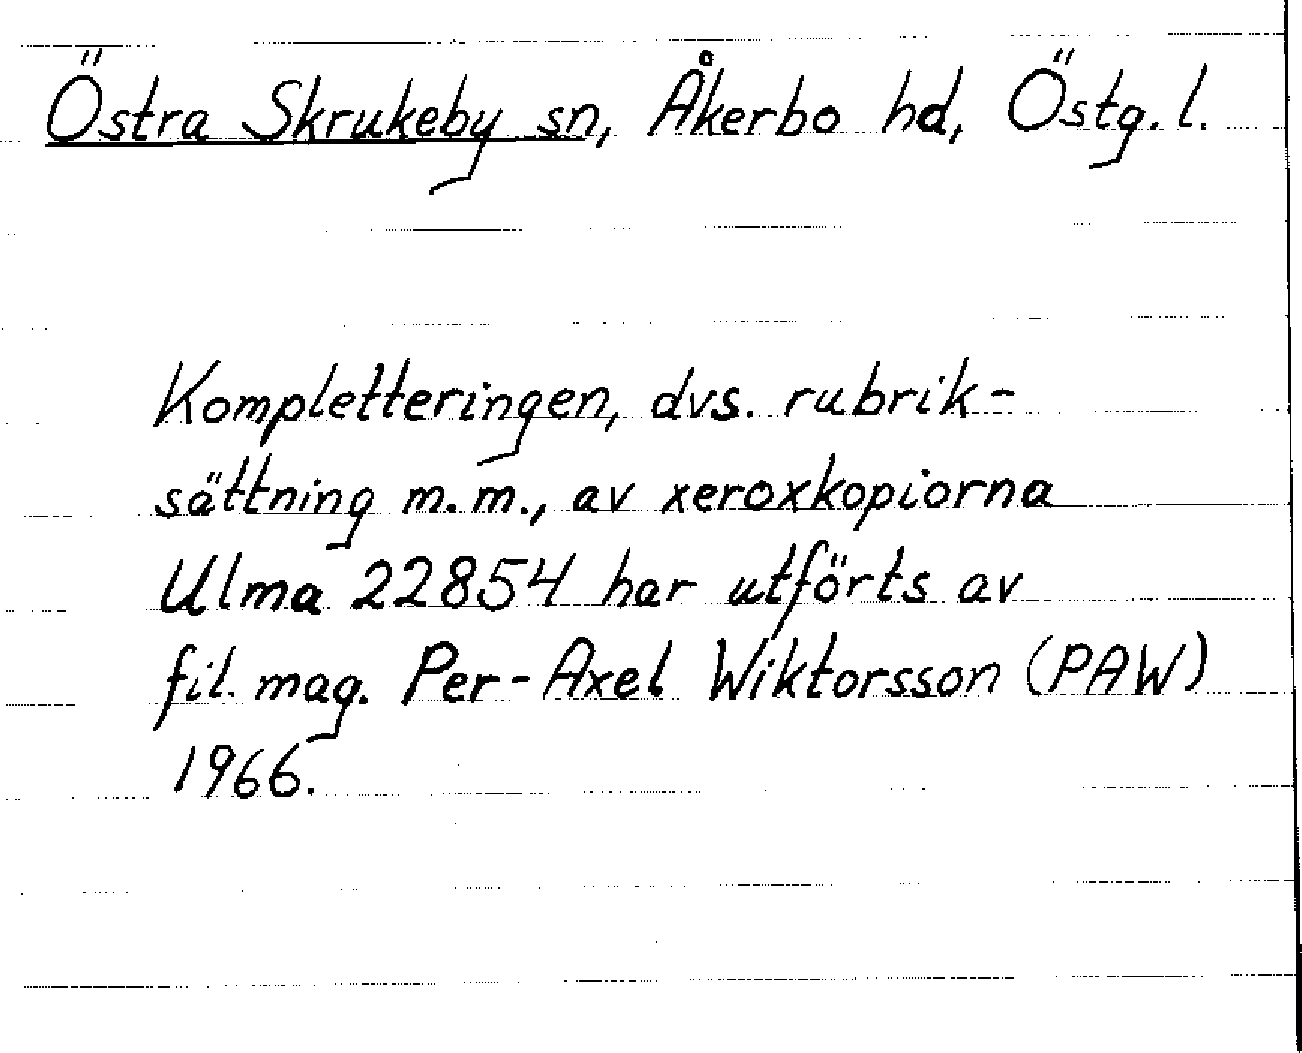 Östra Skrukeby sn, Åkerbo hd, Östg. l.
Kompletteringen, dvs. rubrik-
sättning m.m., av xeroxkopiorna
Ulma 22854 har utförts av
fil. mag. Per-Axel Wiktorsson (PAW)
1966.